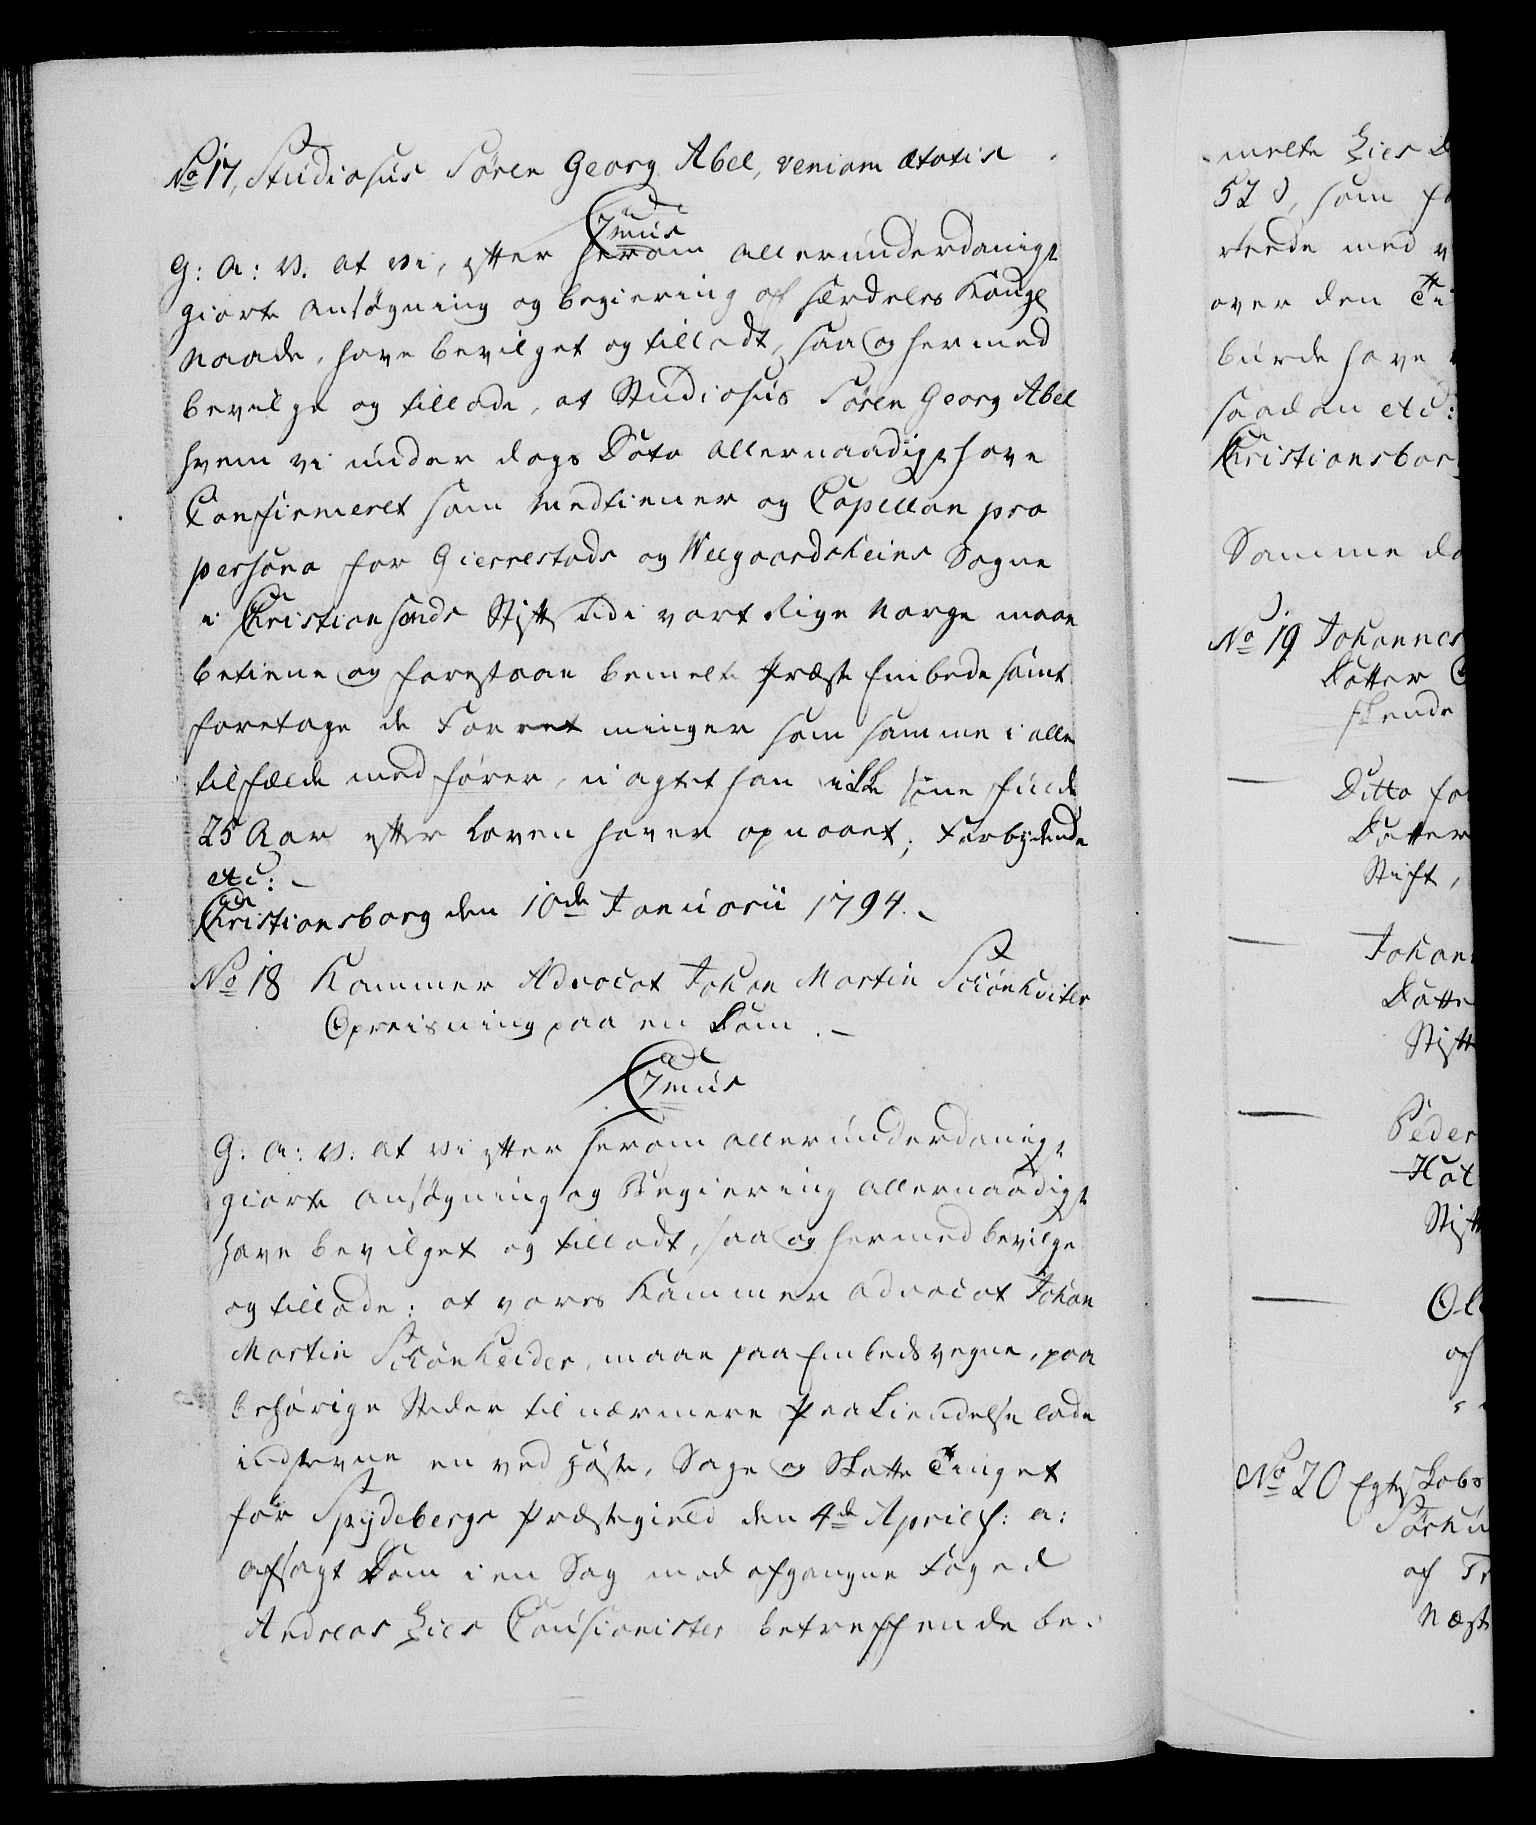 No 17, Studiosus Søren Georg Abel, veniam ætatis
C7mus
G: A: V. at vi, efter herom allerunderdanigst
giorte Ansøgning og begiering af særdeles Kongl
Naade, have bevilget og tilladt, saa og hermed
bevilge og tillade, at Studiosus Søren Georg Abel
hvem vi under dags Dato allernaadigst have
Confirmeret som Medtiener og Capellan pro
persona for Gierrestads og Weegaardsheins Sogne
i Christiansands Stift udi vort Rige Norge maae
betiene og forestaae bemelte Præste Embede samt
foretage de Forretninger som samme i alle
tilfælde medfører, uagtet han ikke sine fulde
25 Aar efter Loven haver opnaaet; Forbydende
etc:
Christiansborg den 10de Januarii 1794.
No 18 Kammer Advocat Johan Martin Schönheiter
Opreisning paa en Dom.
C7mus
G: A: V: at vi efter herom allerunderdanigst
giorte Ansøgning og Begiering allernaadigst
have bevilget og tilladt, saa og hermed bevilge
og tillade: at vores Kammer Advocat Johan
Martin Schönheider, maae paa Embeds vegne, paa
behørige Steder til nærmere Paakiendelse lade
indstevne en ved Høste, Sage og Skatte Tinget
for Spydebergs Præstegield den 4de April f: a:
afsagt Dom i en Sag mod afgangne Foged
Andreas Lies Causionister betreffende be-
melte Lies
52 , som
rede med
over den
burde have
saadan etc:
Christiansbor
Samme
No 19 Johannes
Datter
Ditto for
Datter
Stift,
Johan
Datte
Stift
Peder
Stift
Ol
af
No 20
af
Næst